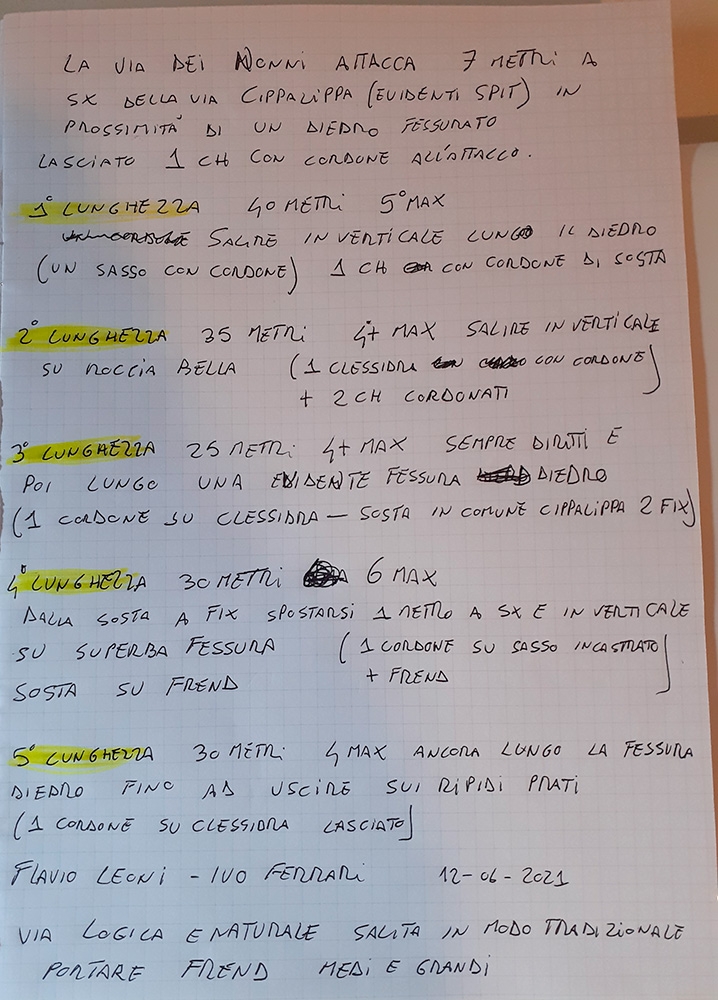 LA VIA DEI NONNI ATTACCA 7 METRI A
SX DELLA VIA CIPPALIPPA (EVIDENTI SPIT) IN
PROSSIMITA' DI UN DIEDRO FESSURATO
LASCIATO 1 CH CON CORDONE ALL'ATTACCO.
1° LUNGHEZZA 40 METRI 5° MAX
SALIRE IN VERTICALE LUNGO IL DIEDRO
(UN SASSO CON CORDONE) 1 CH CON CORDONE DI SOSTA
2° LUNGHEZZA 35 METRI 4°+ MAX SALIRE IN VERTICALE
SU ROCCIA BELLA (1 CLESSIDRA CON CORDONE)
+ 2 CH CORDONATI
3° LUNGHEZZA 25 METRI 4+ MAX SEMPRE DIRITTI E
POI LUNGO UNA EVIDENTE FESSURA DIEDRO
(1 CORDONE SU CLESSIDRA — SOSTA IN COMUNE CIPPALIPPA 2 FIX)
4° LUNGHEZZA 30 METRI 6 MAX
DALLA SOSTA A FIX SPOSTARSI 1 METRO A SX E IN VERTICALE
SU SUPERBA FESSURA (1 CORDONE SU SASSO INCASTRATO
SOSTA SU FREND + FREND)
5° LUNGHEZZA 30 METRI 4 MAX ANCORA LUNGO LA FESSURA
DIEDRO FINO AD USCIRE SUI RIPIDI PRATI
(1 CORDONE SU CLESSIDRA LASCIATO)
FLAVIO LEONI - IVO FERRARI 12-06-2021
VIA LOGICA E NATURALE SALITA IN MODO TRADIZIONALE
PORTARE FREND MEDI E GRANDI